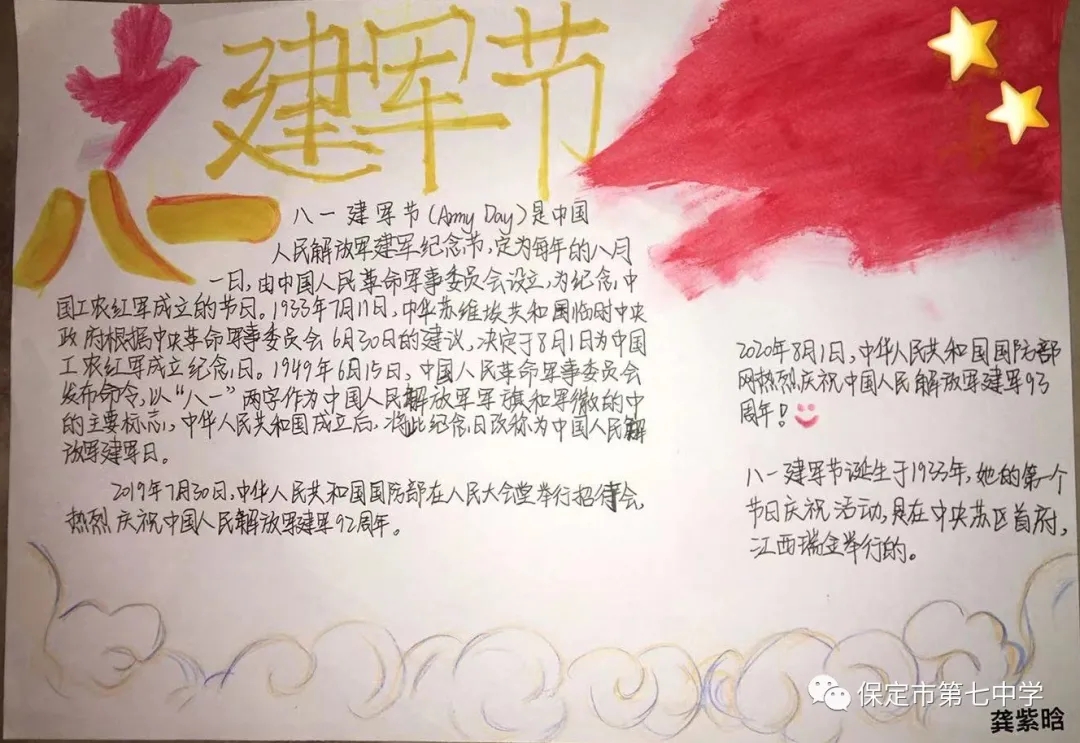 建军节
八一
八一建军节(Army Day)是中国
人民解放军建军纪念节,定为每年的八月
一日,由中国人民革命军事委员会设立,为纪念中
国工农红军成立的节日。1933年7月11日,中华苏维埃共和国临时中央
政府根据中央革命军事委员会6月30日的建议,决定于8月1日为中国
工农红军成立纪念日。1949年6月15日,中国人民革命军事委员会
发布命令,以“八一”两字作为中国人民解放军军旗和军徽的中
的主要标志,中华人民共和国成立后,将此纪念日改称为中国人民解
放军建军日。
2019年7月30日,中华人民共和国国防部在人民大会堂举行招待会,
热烈庆祝中国人民解放军建军92周年。
2020年8月1日,中华人民共和国国防部
网热烈庆祝中国人民解放军建军93
周年!
八一建军节诞生于1933年,她的第一个
节日庆祝活动,是在中央苏区首府,
江西瑞金举行的。
保定市第七中学
龚紫晗